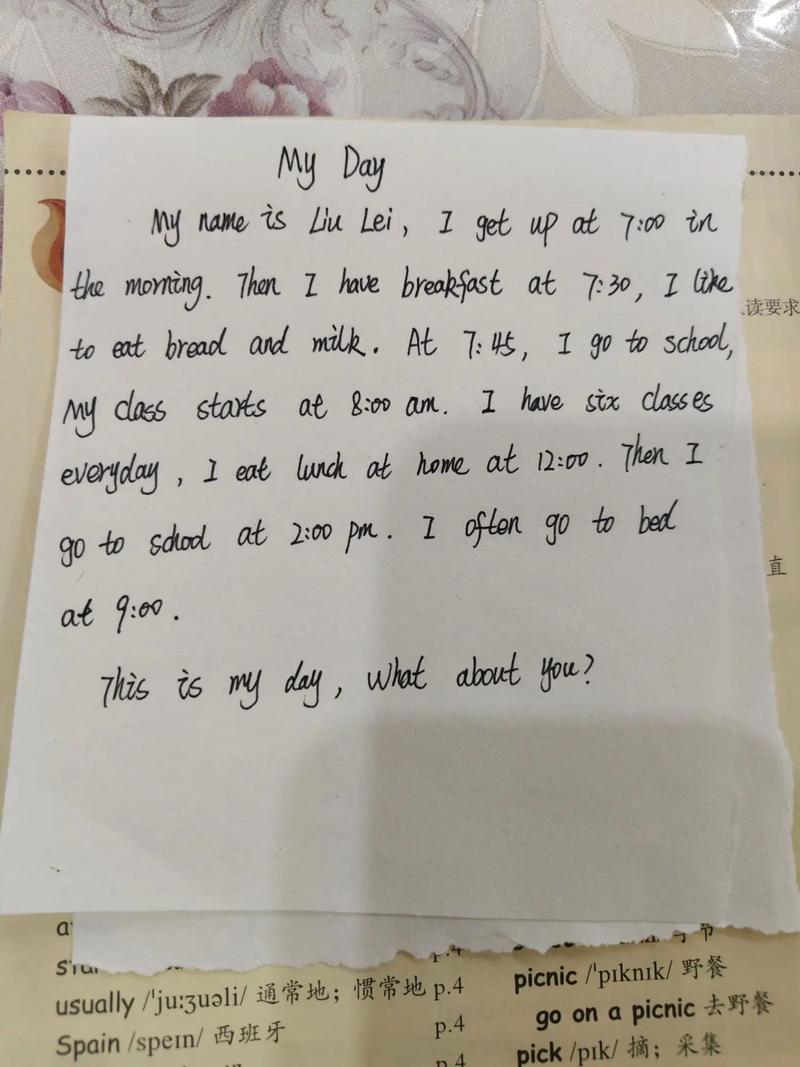 My Day
My name is Liu Lei, I get up at 7:00 in
the morning. Then I have breakfast at 7:30, I like
to eat bread and milk. At 7:45, I go to school,
My class starts at 8:00 am. I have six classes
everyday, I eat lunch at home at 12:00. Then I
go to school at 2:00 pm. I often go to bed
at 9:00.
This is my day, What about you?
读要求
直
usually /'ju:ʒuəli/ 通常地；惯常地 p.4
Spain /speɪn/ 西班牙 p.4
p.4
picnic /'pɪknɪk/ 野餐
go on a picnic 去野餐
pick /pɪk/ 摘；采集